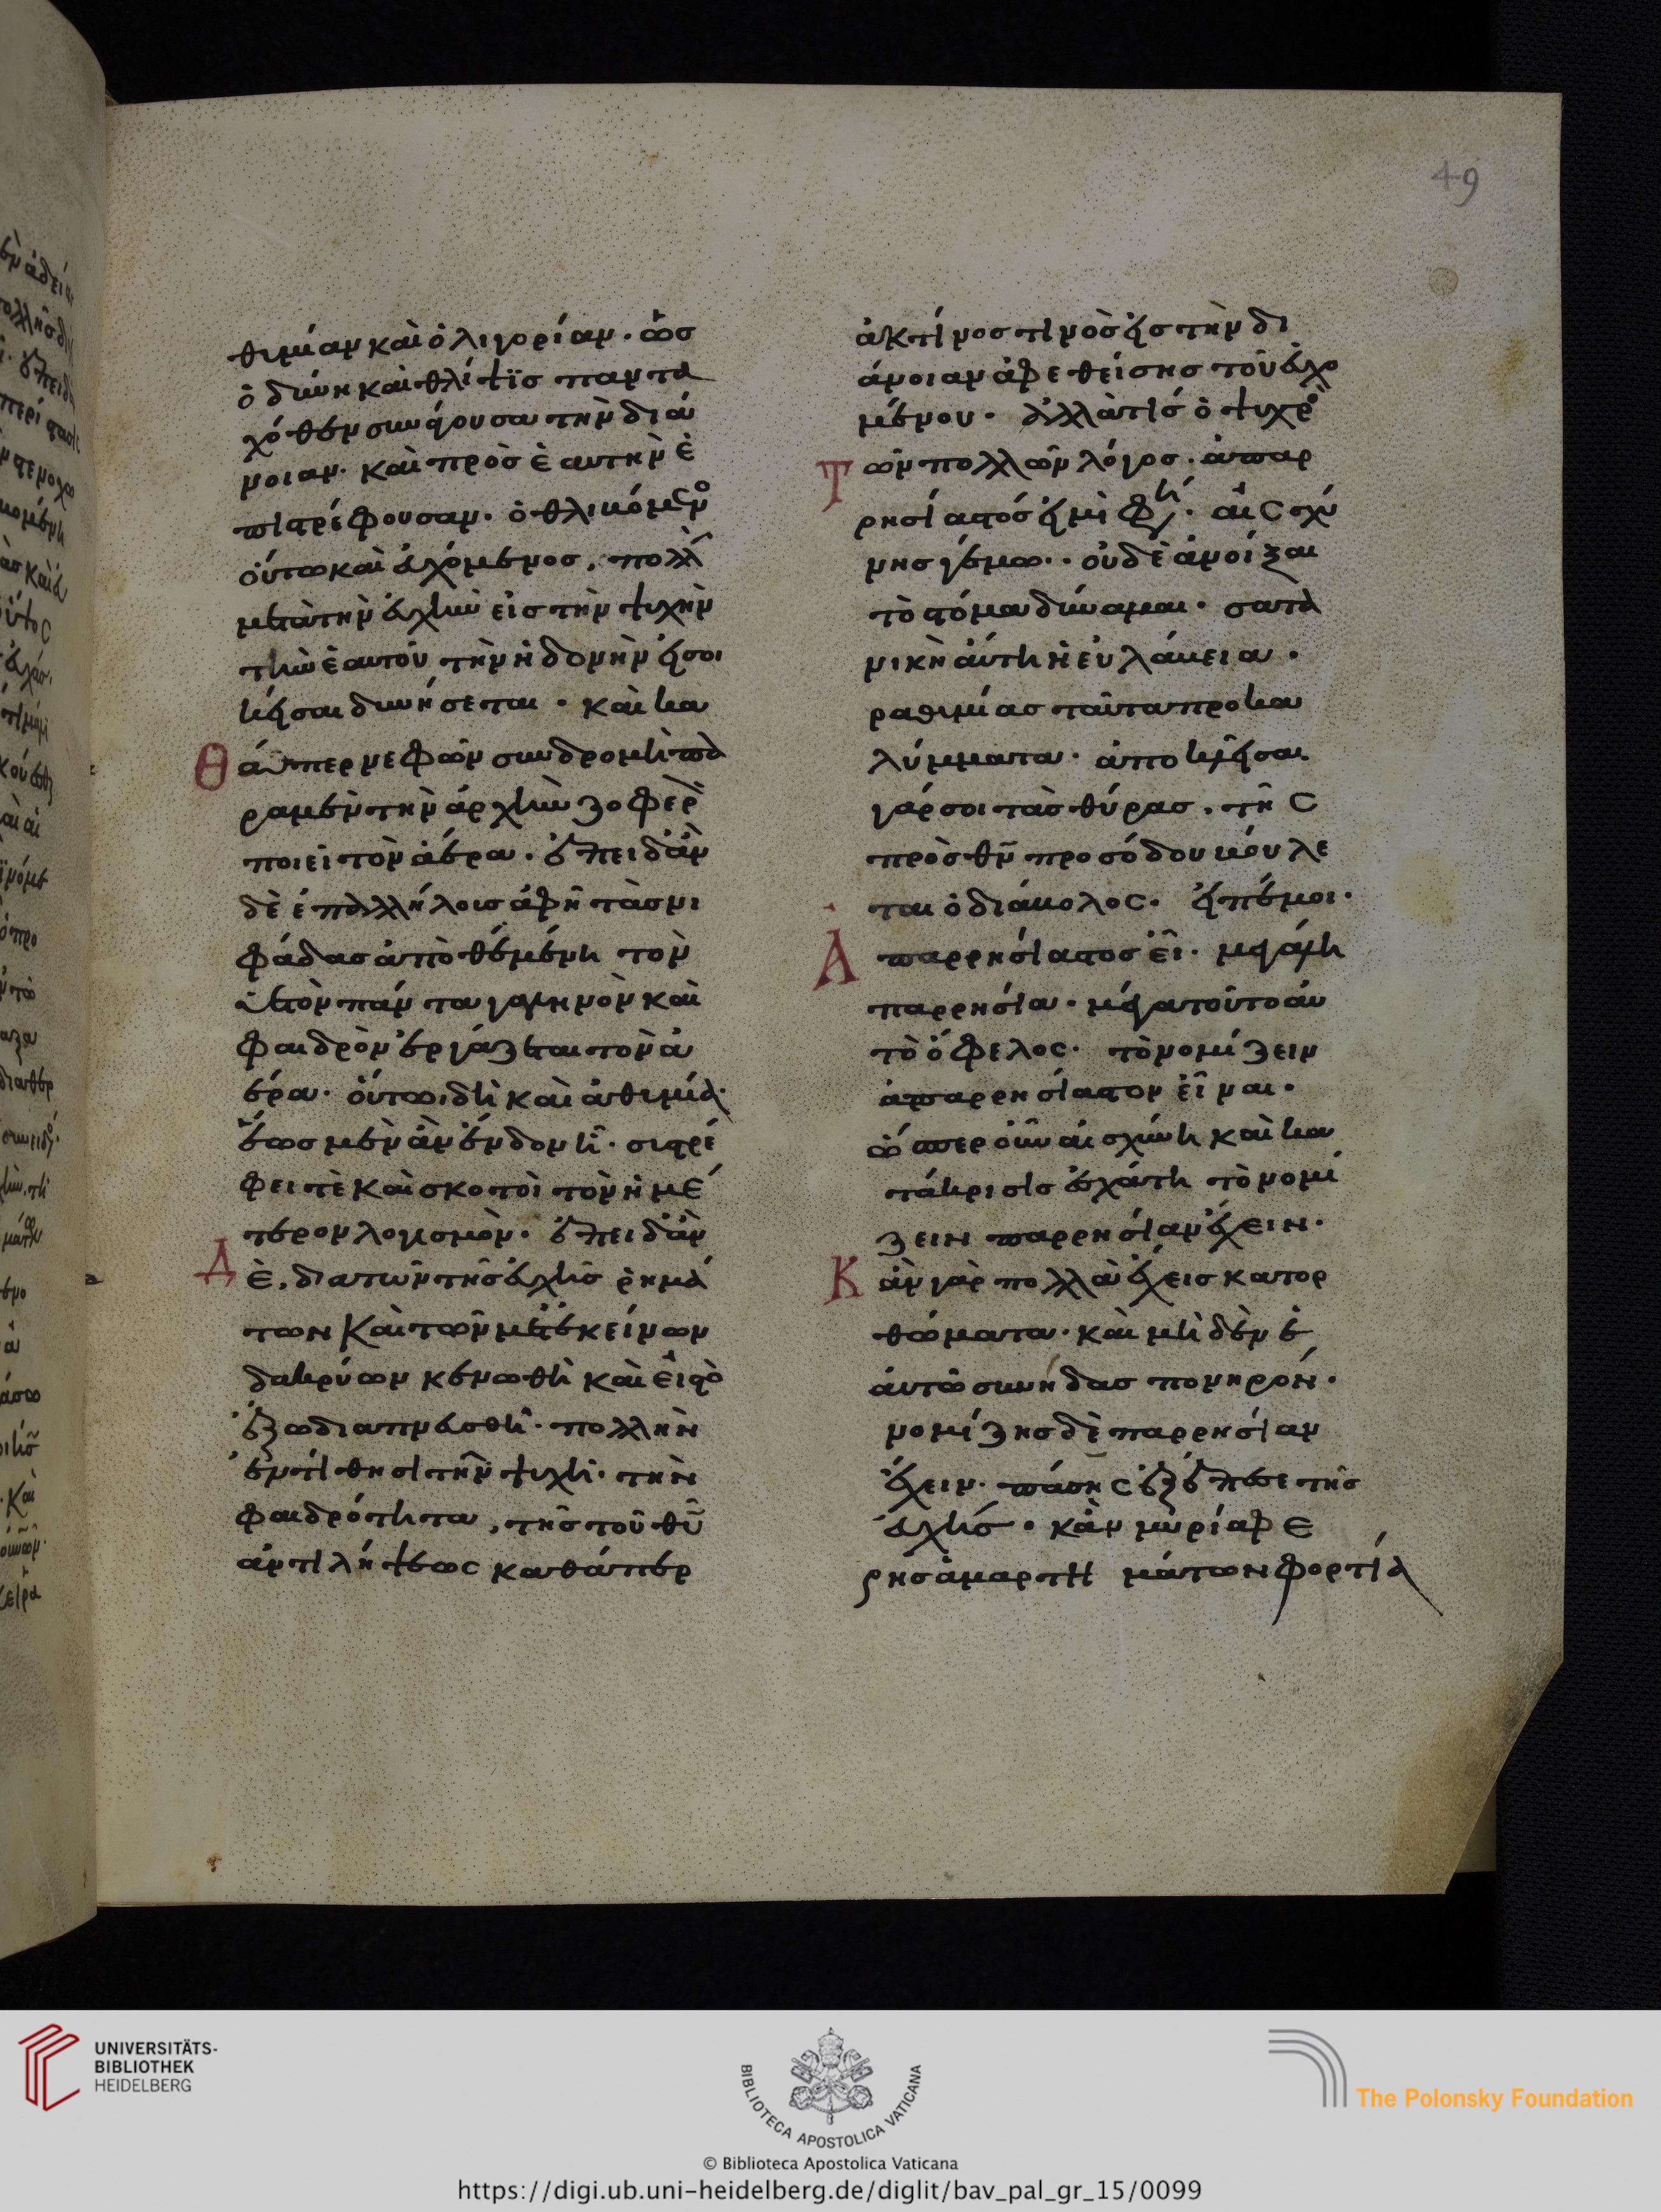 49
θυμίαν καὶ ὀλιγορίαν· ὡσ
ὀδύνη καὶ θλίψϊσ πανταχό
θεν συνάγουσα τὴν διά
νοιαν· καὶ πρὸσ ἑαυτὴν ἐ
πιστρέφουσαν· ὁ θλιβόμενο
ὁύτω καὶ ἐυχόμενοσ, πολλὴ
μετὰ τὴν ἐυχὴν εἰσ τὴν ψυχὴν
τὴν ἑαυτοῦ τὴν ἡδονὴν
δυνήσεται· καὶ κα
Θάπερ νεφῶν συνδρομὴ πα
ραμὲν τὴν ἀρχὴν ζοφερὸ
ποιεῖ τὸν ἀέρα· ἐπειδὰν
δὲ ἐπαλλήλοισ ἀφῆ τὰσ νι
φάδασ ἀποθεμένη τὸν
ὑετὸν πάντα γαληνὸν καὶ
φαιδρὸν ἐργάζεται τὸν ἀ
έρα· ὁύτω δὴ καὶ ἀθυμία·
ἕωσ μὲν ἂν ἔνδον ῆ· στρέ
φει τὲ καὶ σκοτοῖ τὸν ἡμέ
τερον λογισμὸν· ἐπειδὰν
Δὲ, διὰ τῶν τῆσ ἐυχῆσ ῥημά
των καὶ τῶν μετ ἐκείνων
δακρύων κενωθὴ καὶ εἰσ τὸ
ἔξω διαπνευσθῆ· πολλὴν
ἐντίθησι τῆν ψυχὴ· τὴν
φαιδρότητα, τῆσ τοῦ θῦ
ἀντιλήψεωσ καθάπερ
ἀκτίνοσ τινὸσ εἰσ τὴν δι
άνοιαν ἀφεθείσησ τοῦ ἐυχο
μένου· ἀλλὰ τίσ ὁ ψυχρὸ
Τῶν πολλῶν λόγοσ· ἀπαρ
ρησίαστόσ εἰμὶ φησί· αἰσχύ
νησ γέμω·· οὐδὲ ἀνοίξαι
τὸ στόμα δύναμαι· σατα
νικὴ ἀύτη ἡ ἐυλάβεια·
ραθυμίασ ταῦτα προκα
λύμματα· ἀποκλεῖσαι
γάρ σοι τὰσ θύρασ, τῆσ
πρὸσ θν̄ προσόδου βούλε
ται ὁ διάβολοσ· εἰπέμοι·
Ἀπαρρησίαστοσ εἶ· μεγάλη
παρρησία· μέγα τοῦτο ἀυ
τὸ ὄφελοσ· τὸ νομίζειν
ἀπαρρησίαστον εἶναι·
ὥσπερ οὖν αἰσχύνη καὶ κα
τάκρισισ ἐσχάτη τὸ νομί
ζειν παρρησίαν ἔχειν·
Κἂν γὰρ πολλὰ ἔχεισ κατορ
θώματα· καὶ μηδὲν ἐ
αυτῶ συνήδασ πονηρόν·
νομίζησ δὲ παρρησίαν
ἔχειν· πάσησ ἐξέπεσε τῆσ
ἐυχῆσ· κἂν μυρία φέ
ρησ ἁμαρτημάτων φορτία
UNIVERSITÄTS-
BIBLIOTHEK
HEIDELBERG
BIBLIOTECA APOSTOLICA VATICANA
The Polonsky Foundation
© Biblioteca Apostolica Vaticana
https://digi.ub.uni-heidelberg.de/diglit/bav_pal_gr_15/0099